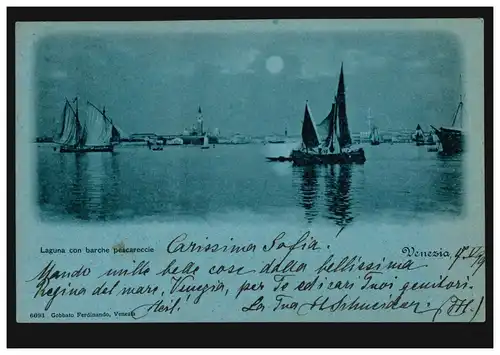 Laguna con barche pescareccie
Carissima Sofia.
Venezia
Mando mille belle cose dalla bellissima
Regina del mare, Venezia, per Te ed i cari Tuoi genitori.
La Tua H Schneider.
6091 Gobbato Ferdinando, Venezia